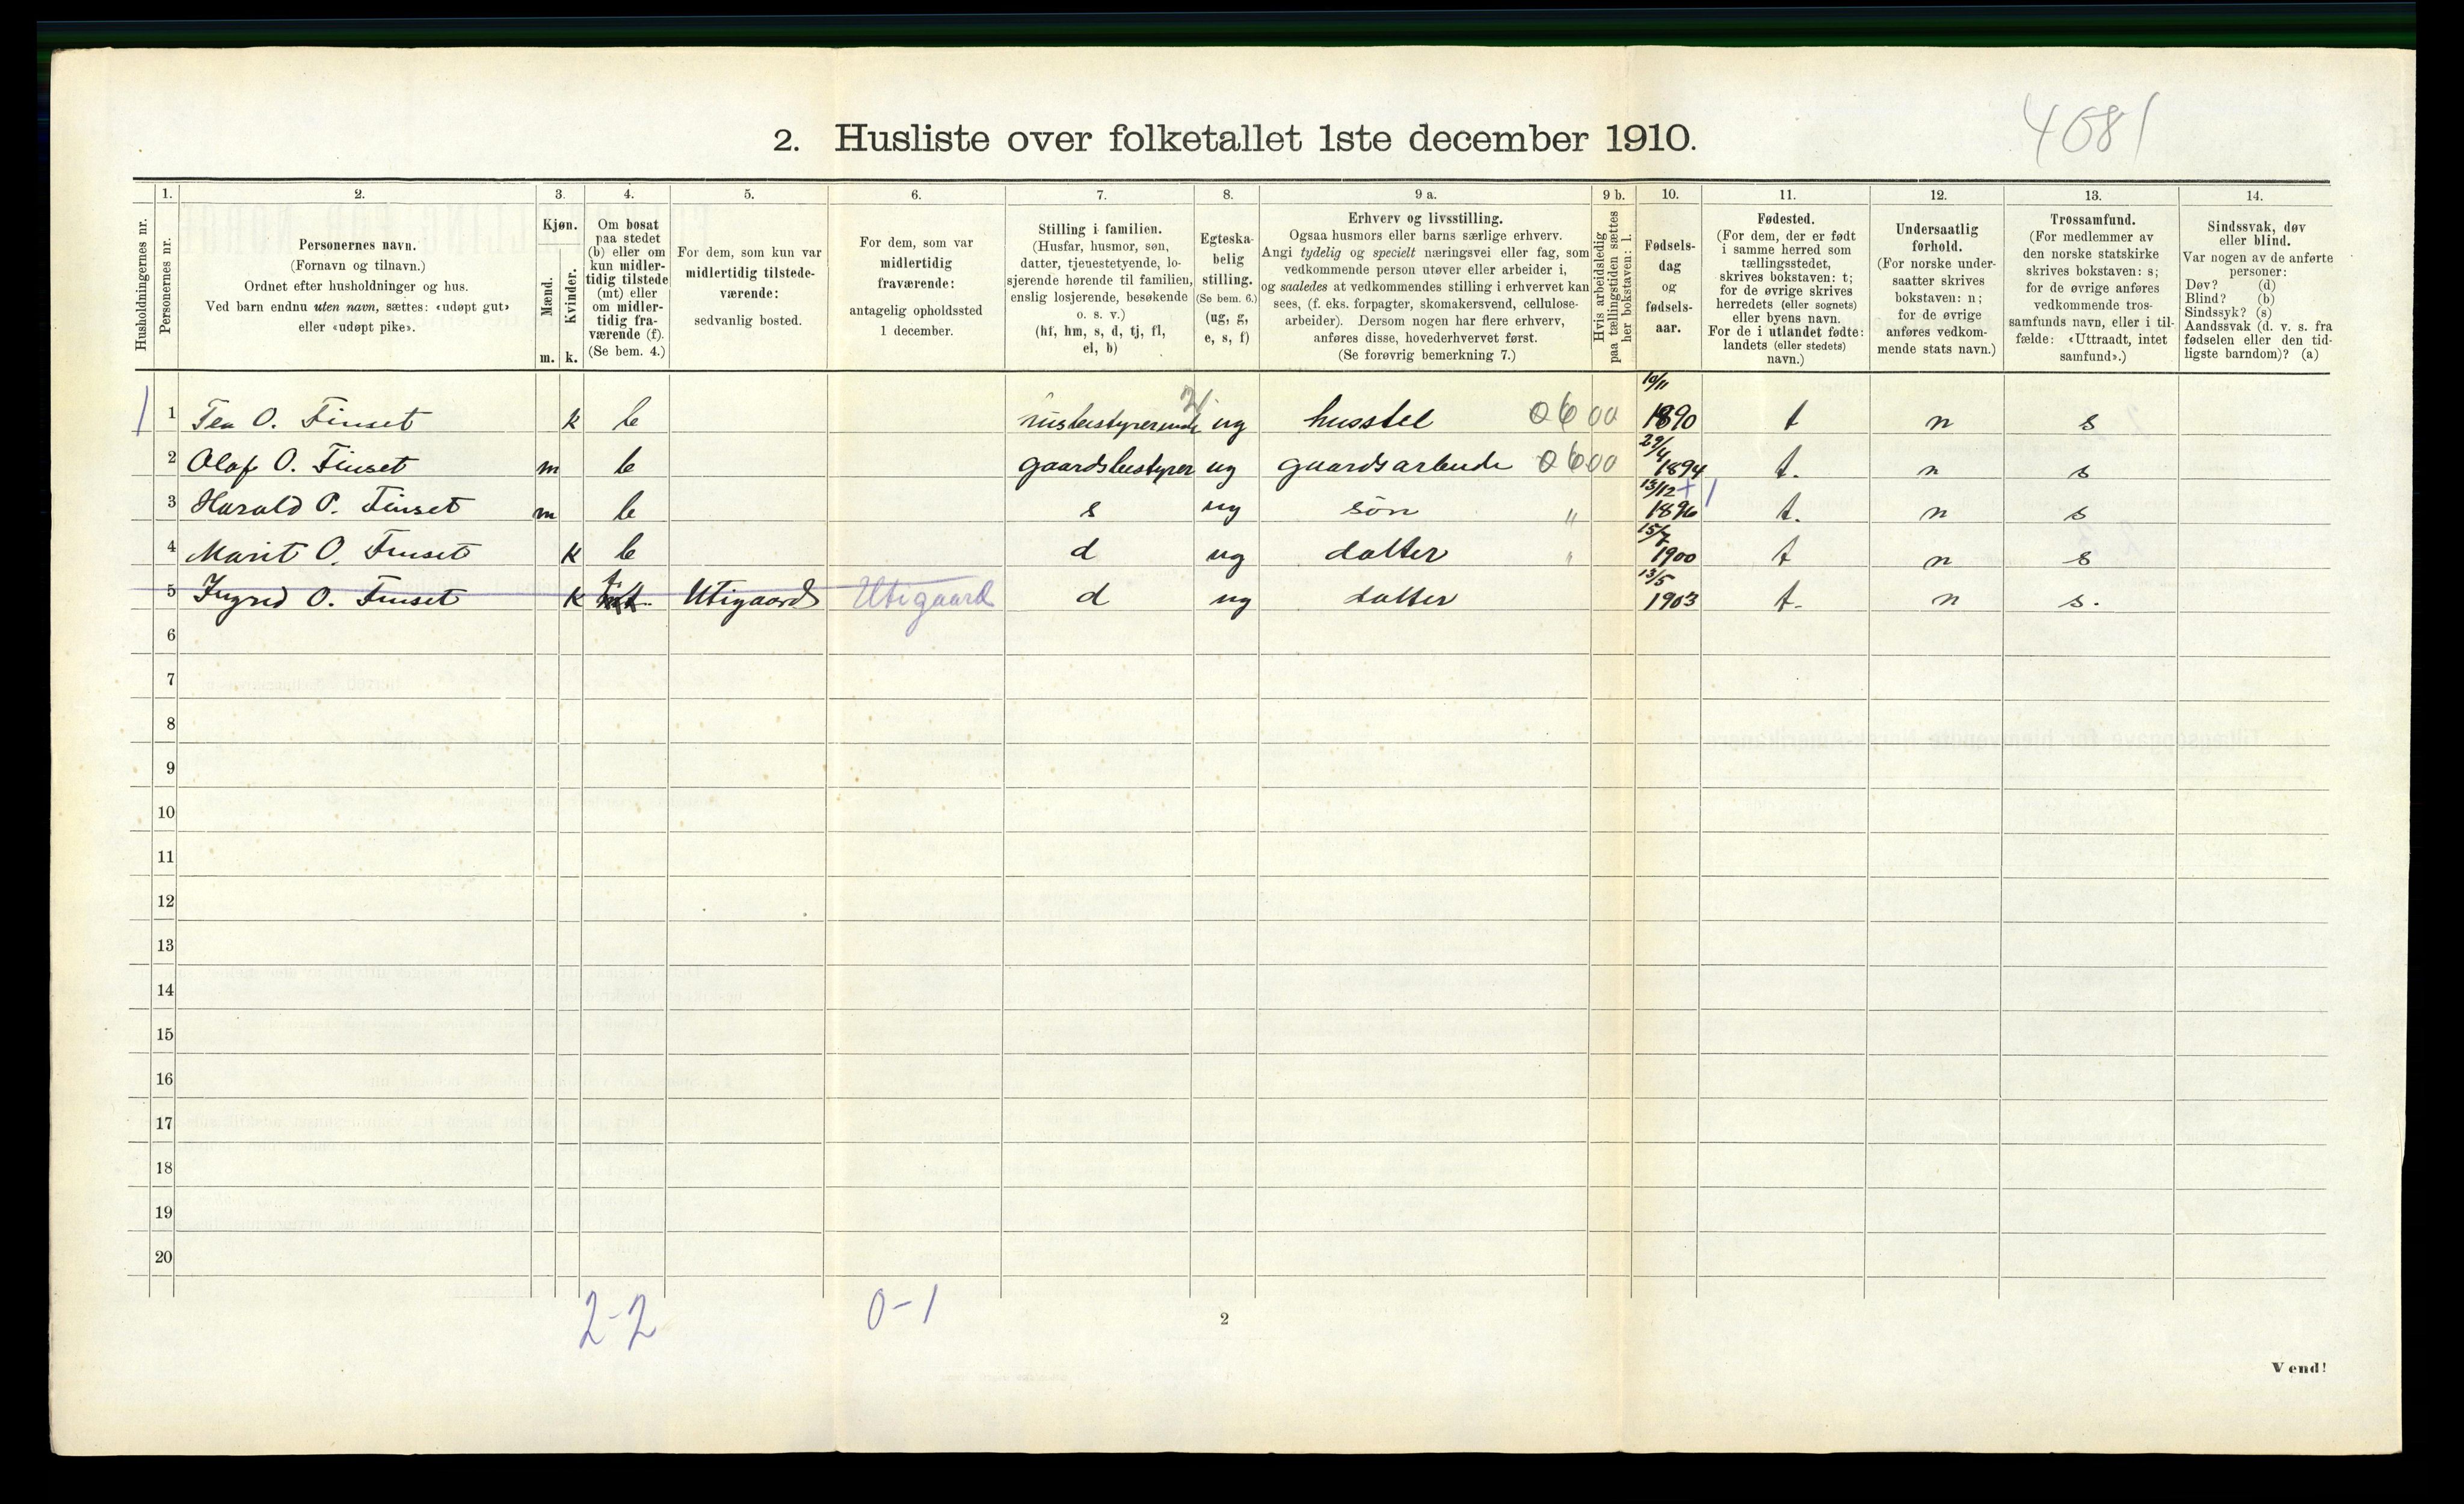 2. Husliste over folketallet 1ste december 1910.
4081
Husholdningernes nr.
1.
Personernes nr.
2.
Personernes navn.
(Fornavn og tilnavn.)
Ordnet efter husholdninger og hus.
Ved barn endnu uten navn, sættes: «udøpt gut»
eller «udøpt pike».
3.
Kjøn.
Mænd.
Kvinder.
m. k.
4.
Om bosat
paa stedet
(b) eller om
kun midler-
tidig tilstede
(mt) eller
om midler-
tidig fra-
værende (f).
(Se bem. 4.)
5.
For dem, som kun var
midlertidig tilstede-
værende:
sedvanlig bosted.
6.
For dem, som var
midlertidig
fraværende:
antagelig opholdssted
1 december.
7.
Stilling i familien.
(Husfar, husmor, søn,
datter, tjenestetyende, lo-
sjerende hørende til familien,
enslig losjerende, besøkende
o. s. v.)
(hf, hm, s, d, tj, fl,
el, b)
8.
Egteska-
belig
stilling.
(Se bem. 6.)
(ug, g,
e, s, f)
9 a.
Erhverv og livsstilling.
Ogsaa husmors eller barns særlige erhverv.
Angi tydelig og specielt næringsvei eller fag, som
vedkommende person utøver eller arbeider i,
og saaledes at vedkommendes stilling i erhvervet kan
sees, (f. eks. forpagter, skomakersvend, cellulose-
arbeider). Dersom nogen har flere erhverv,
anføres disse, hovederhvervet først.
(Se forøvrig bemerkning 7.)
9 b.
Hvis arbeidsledig
paa tællingstiden sættes
her bokstaven: l.
10.
Fødsels-
dag
og
fødsels-
aar.
11.
Fødested.
(For dem, der er født
i samme herred som
tællingsstedet,
skrives bokstaven: t;
for de øvrige skrives
herredets (eller sognets)
eller byens navn.
For de i utlandet fødte:
landets (eller stedets)
navn.)
12.
Undersaatlig
forhold.
(For norske under-
saatter skrives
bokstaven: n;
for de øvrige
anføres vedkom-
mende stats navn.)
13.
Trossamfund.
(For medlemmer av
den norske statskirke
skrives bokstaven: s;
for de øvrige anføres
vedkommende tros-
samfunds navn, eller i til-
fælde: «Uttraadt, intet
samfund».)
14.
Sindssvak, døv
eller blind.
Var nogen av de anførte
personer:
Døv? (d)
Blind? (b)
Sindssyk? (s)
Aandssvak (d. v. s. fra
fødselen eller den tid-
ligste barndom)? (a)
1 1 Tea O. Finset k b husbestyrerinde 21 ug husstel 0600 10/11 1890 t n s
2 Olaf O. Finset m b gaardsbestyrer ug gaardsarbeide 0600 29/4 1894 t. n s
3 Harald O. Finset m b s ug søn " 13/12 1896 +1 t. n s
4 Marit O. Finset k b d ug datter " 15/7 1900 t n s
5 Ingrid O. Finset k mt f. Utigaard Utigaard d ug datter 13/5 1903 t. n s.
6
7
8
9
10
11
12
13
14
15
16
17
18
19
20
2-2
0-1
2
Vend!